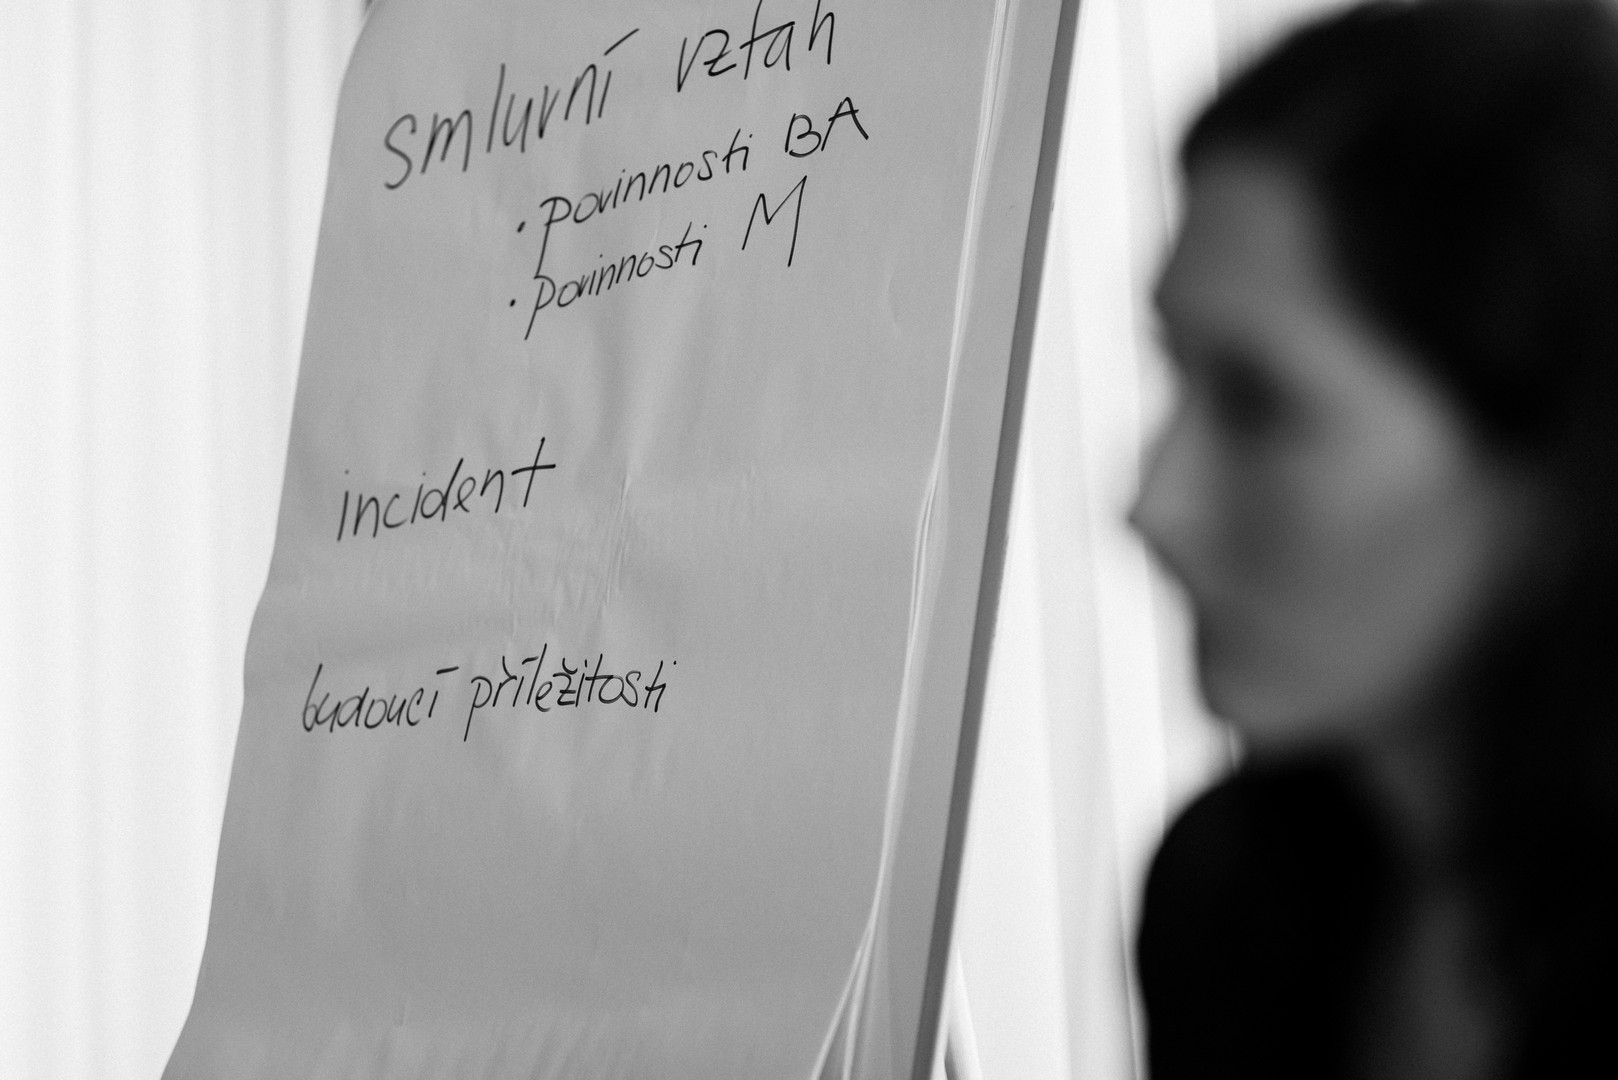 smluvní vztah
· povinnosti BA
· povinnosti M
incident
budoucí příležitosti